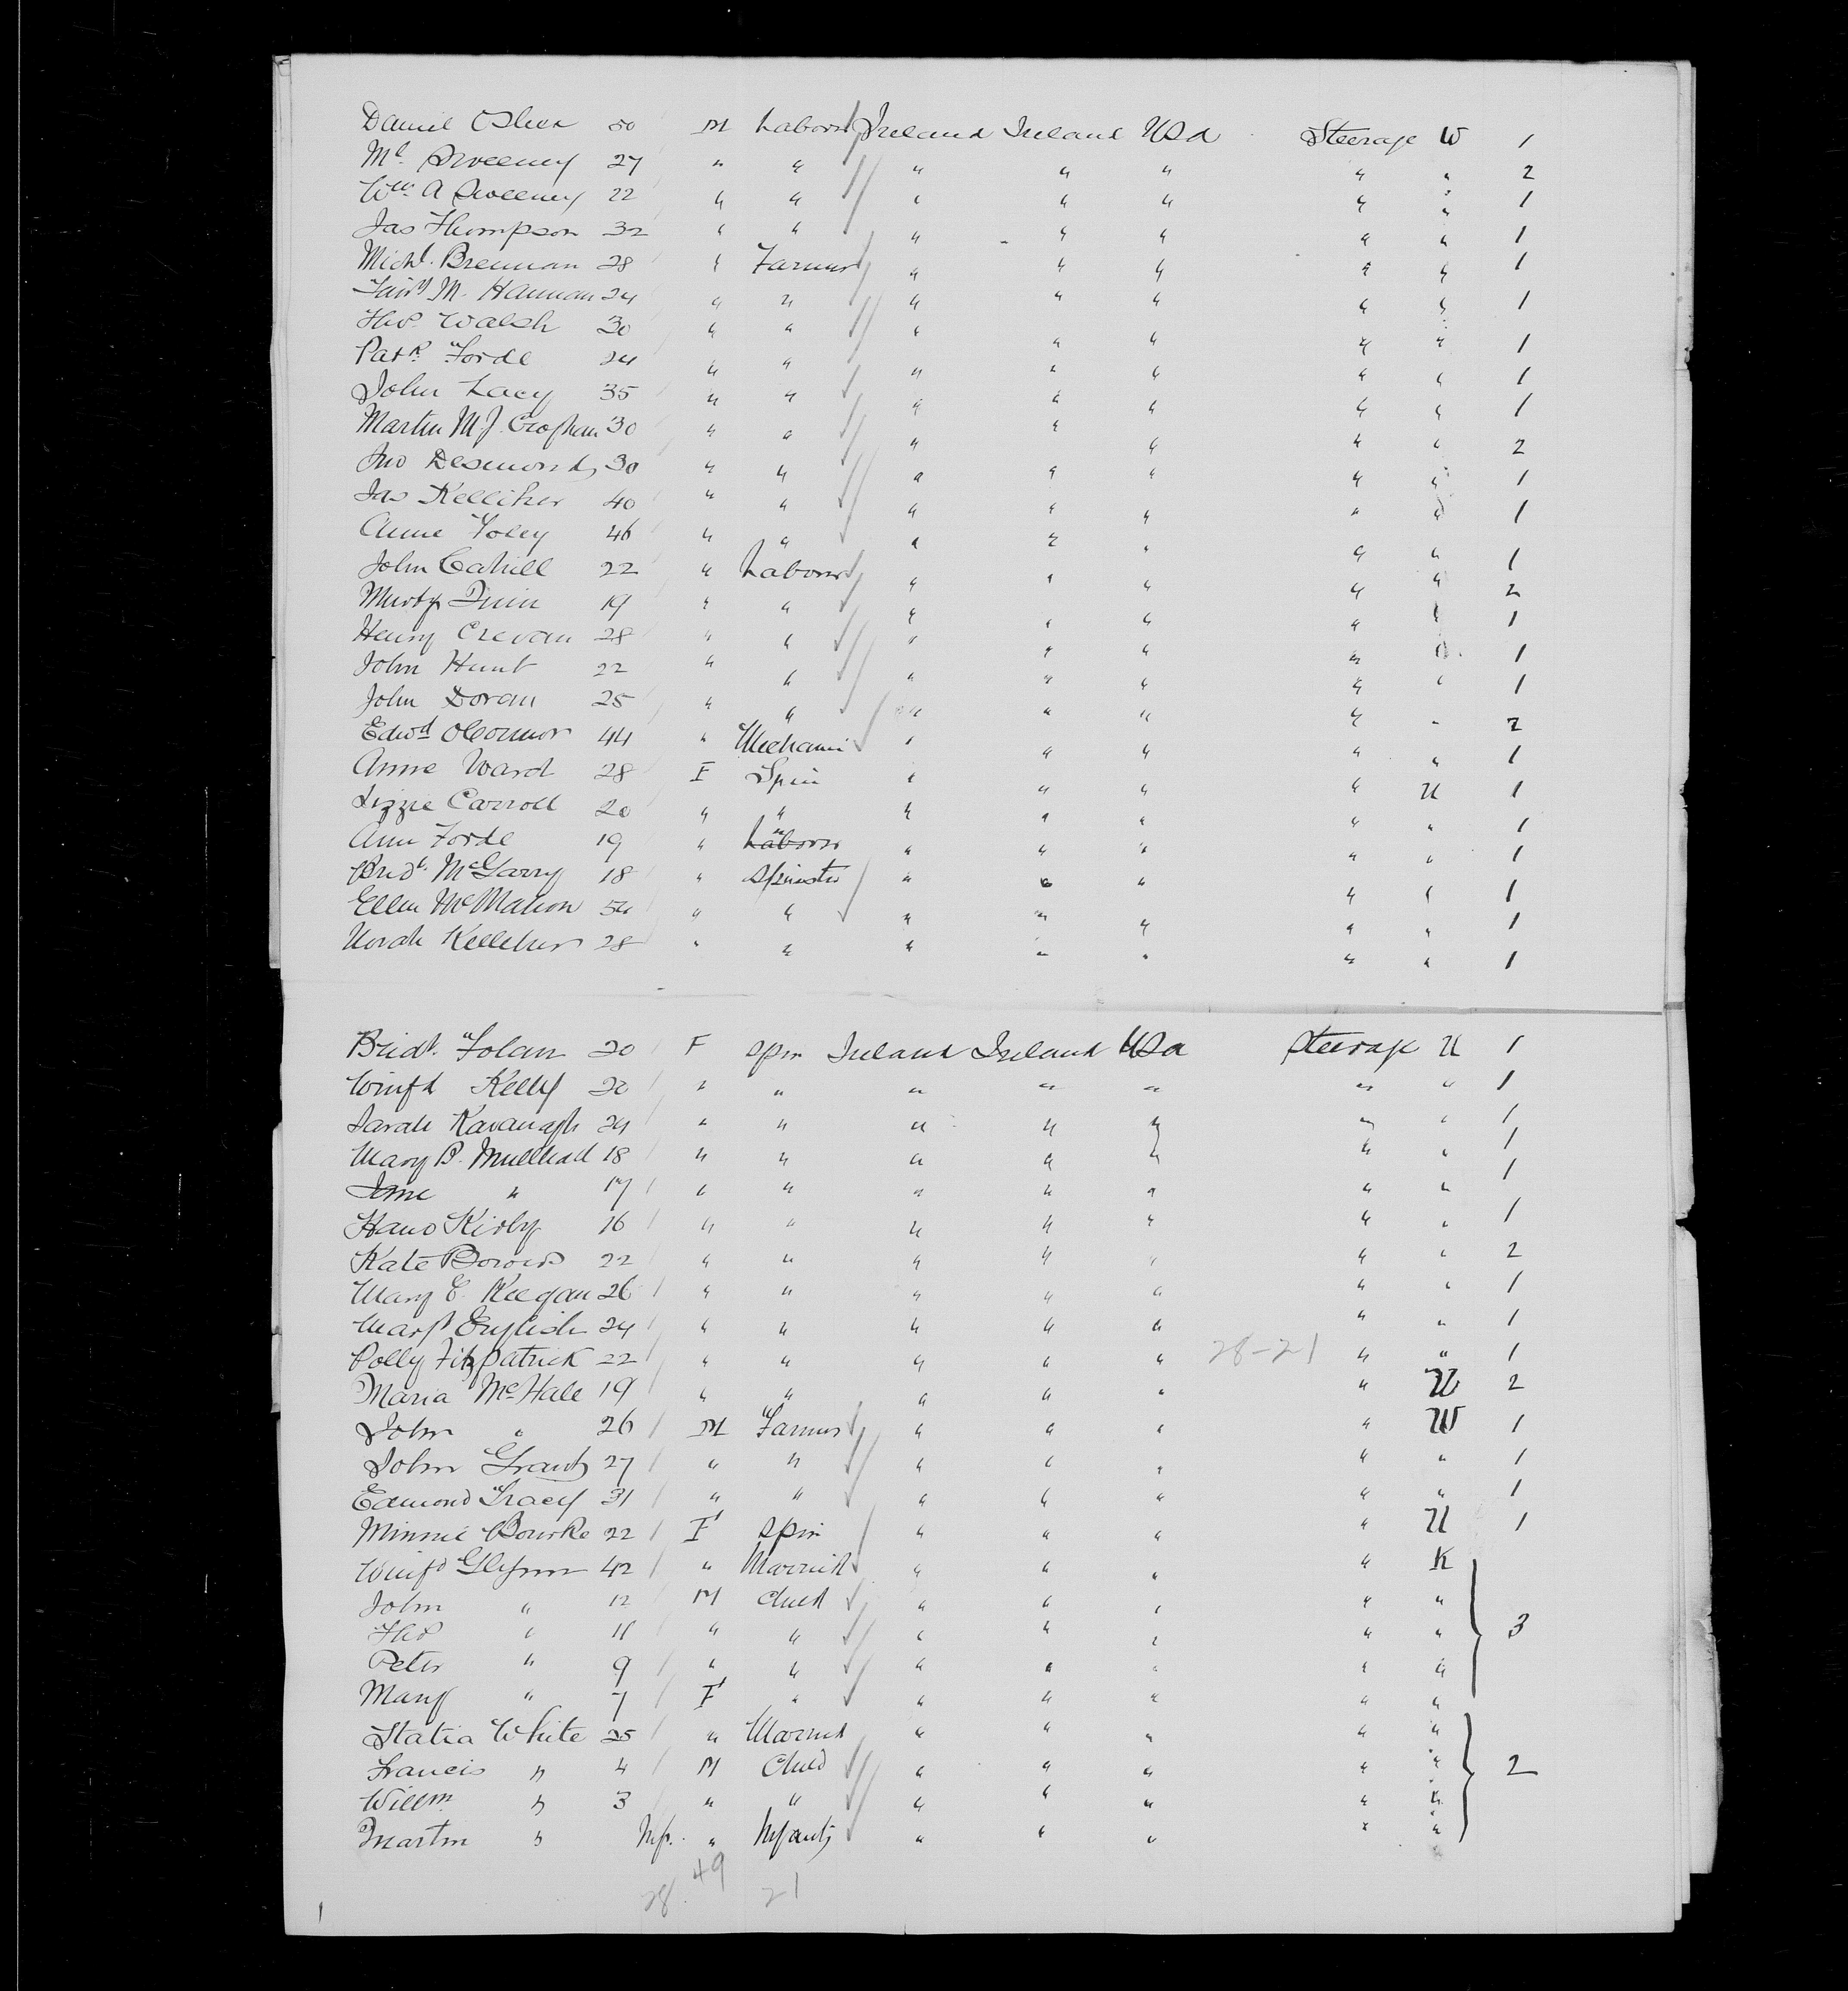 Daniel OShea 50 M Laborer Ireland Ireland USA Steerage W 1
Ml Sweeney 27 " " " " " " " 2
Wm A Sweeney 22 " " " " " " " 1
Jas Thompson 32 " " " " " " " 1
Michl. Brennan 28 " Farmer " " " " " 1
M. Hannan 24 " " " " " " " 1
Thos Walsh 30 " " " " " " " 1
Patk Forde 24 " " " " " " " 1
John Lacy 35 " " " " " " " 1
Martin M.J. Croghan 30 " " " " " " " 2
Jno Desmond 30 " " " " " " " 1
Jas Kelliher 40 " " " " " " " 1
Anne Foley 46 " " " " " " " 1
John Cahill 22 " Laborer " " " " " 2
Murty Quin 19 " " " " " " " 1
Henry Crevan 28 " " " " " " " 1
John Hunt 22 " " " " " " " 1
John Doran 25 " " " " " " " 2
Edwd OConnor 44 " Mechanic " " " " " 1
Anne Ward 28 F Spin " " " " U 1
Lizzie Carroll 20 " " " " " " " 1
Ann Forde 19 " Laborer " " " " " " 1
Bridt. McGarry 18 " Spinster " " " " " 1
Ellen McMahon 54 " " " " " " " 1
Norah Kelleher 28 " " " " " " " 1
Bridt. Folan 20 F Spin Ireland Ireland USA Steerage U 1
Winfd Kelly 20 " " " " " " " 1
Sarah Kavanagh 24 " " " " " " " 1
Mary B. Mullhall 18 " " " " " " " 1
Jane " 17 " " " " " " " 1
Hano Kirby 16 " " " " " " " 1
Kate 22 " " " " " " " 2
Mary E. Keegan 26 " " " " " " " 1
Margt English 24 " " " " " " " 1
Polly Fitzpatrick 22 " " " " " 28-21 " " 1
Maria McHale 19 " " " " " " U 2
John " 26 M Farmer " " " " W 1
John Grant 27 " " " " " " " 1
Edmond Tracy 31 " " " " " " " 1
Minnie Bourke 22 F Spin " " " " U 1
Winfd Glynn 42 " Married " " " " K
John " 12 M Child " " " " "
Thos " 11 " " " " " " " 3
Peter " 9 " " " " " " "
Mary " 7 F " " " " " "
Statia White 25 " Married " " " " "
Francis " 4 M Child " " " " " 2
Willm " 3 " " " " " " "
Martin " Inf. " Infant " " " " "
28 49 21